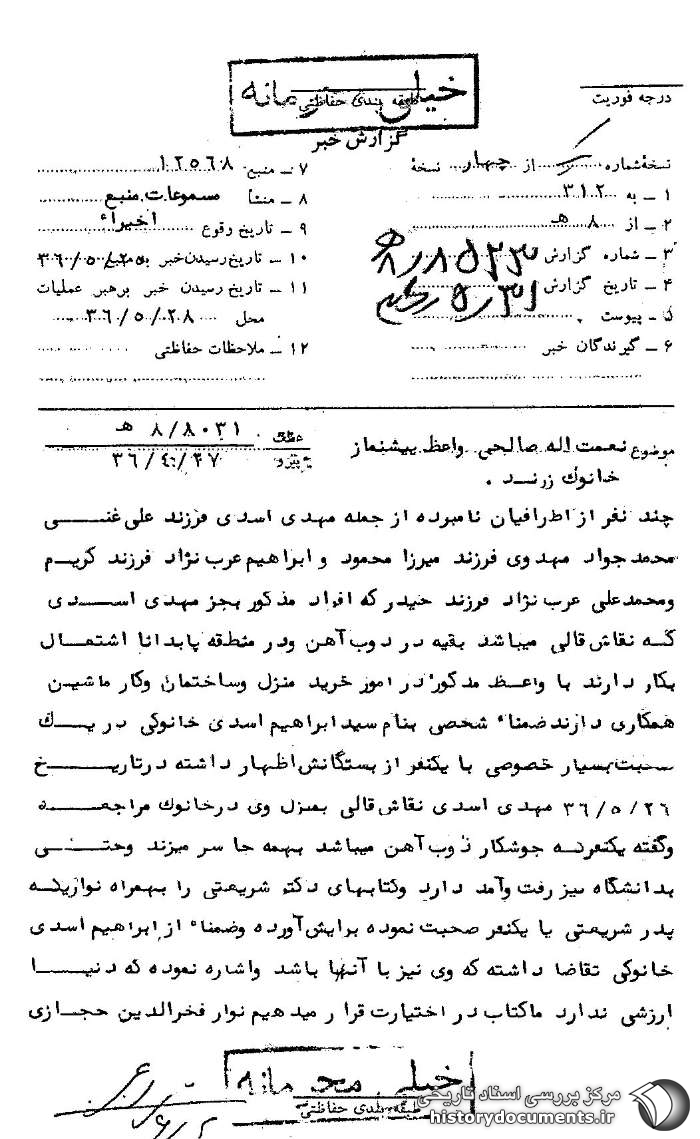 خیلی محرمانه
طبقه بندی حفاظتی
درجه فوریت
گزارش خبر
نسخهٔ شماره از چهار نسخهٔ
۱ ـ به ۳۱۲
۲ ـ از ۸ هـ
۳ ـ شماره گزارش
۴ ـ تاریخ گزارش
۵ ـ پیوست
۶ ـ گیرندگان خبر
۷ ـ منبع ۱۲۵۶۸
۸ ـ منشأ مسموعات منبع
۹ ـ تاریخ وقوع اخیراً
۱۰ ـ تاریخ رسیدن خبر به منبع ۳۶/۵/۲۵
۱۱ ـ تاریخ رسیدن خبر برهبر عملیات
محل ۳۶/۵/۲۸
۱۲ ـ ملاحظات حفاظتی
موضوع نعمت اله صالحی واعظ پیشنماز
خانوك زرند .
عطف ۸/۸۰۳۱ هـ
پیرو ۳۶/۴/۲۷
چند نفر از اطرافیان نامبرده از جمله مهدی اسدی فرزند علی غنی
محمد جواد مهدوی فرزند میرزا محمود و ابراهیم عرب نژاد فرزند کریم
و محمدعلی عرب نژاد فرزند حیدر که افراد مذکور بجز مهدی اسدی
که نقاش قالی میباشد بقیه در ذوب آهن ودر منطقه پابدانا اشتغال
بکار دارند با واعظ مذکور در امور خرید منزل وساختمان وکار ماشین
همکاری دارند ضمناً شخصی بنام سید ابراهیم اسدی خانوکی در یك
صحبت بسیار خصوصی با یکنفر از بستگانش اظهار داشته در تاریخ
۳۶/۵/۲۶ مهدی اسدی نقاش قالی بمنزل وی در خانوك مراجعه
وگفته یکنفر که جوشکار ذوب آهن میباشد بهمه جا سر میزند وحتی
بدانشگاه نیز رفت وآمد دارد وکتابهای دکتر شریعتی را بهمراه نواریکه
پدر شریعتی با یکنفر صحبت نموده برایش آورده وضمناً از ابراهیم اسدی
خانوکی تقاضا داشته که وی نیز با آنها باشد واشاره نموده که دنیا
ارزشی ندارد ماکتاب در اختیارت قرار میدهیم نوار فخرالدین حجازی
خیلی محرمانه
طبقه بندی حفاظتی
مرکز بررسی اسناد تاریخی
historydocuments.ir